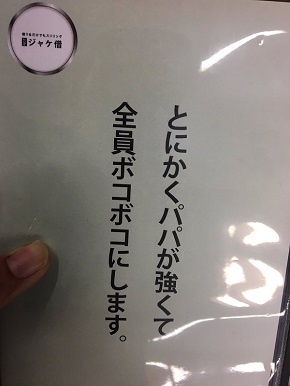 ジャケ借
とにかくパパが強くて
全員ボコボコにします。